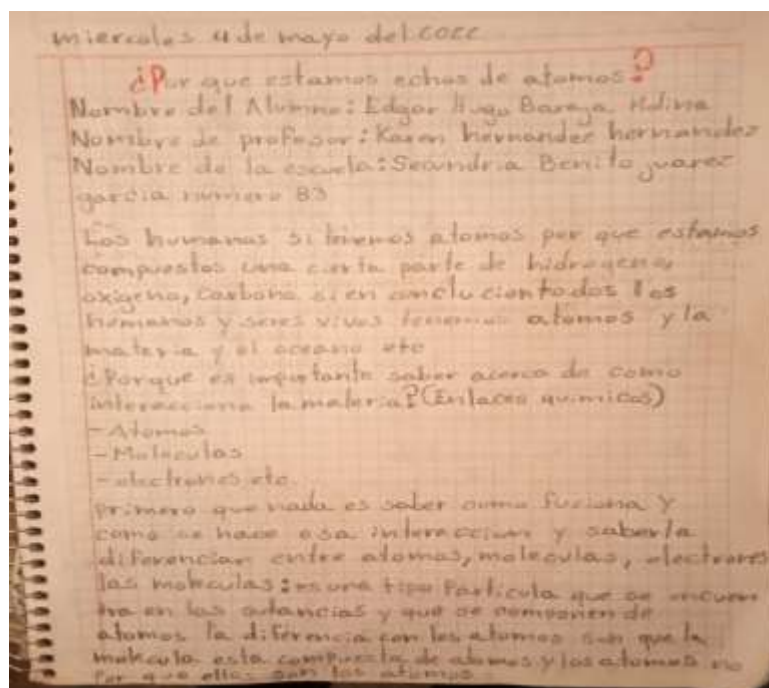 miercoles 4 de mayo del 2022
¿Por que estamos echos de atomos?
Nombre del Alumno: Edgar Hugo
Nombre de profesor: Karen hernandez hernandez
Nombre de la escuela: Secundria Benito juarez
garcia numero 83
Los humanos si tenemos atomos por que estamos
compuestos una cierta parte de hidrogeno,
oxigeno, carbono si en conclucion todos los
humanos y seres vivos tenemos atomos y la
materia y el oceano etc
¿Porque es importante saber acerca de como
interacciona la materia? (Enlaces quimicos)
-Atomos
-Moleculas
-electrones etc.
primero que nada es saber como fuciona y
como se hace esa interaccion y saberla
diferenciar entre atomos, moleculas, electrones
las moleculas: es una tipo Particula que se encuen
tra en las sutancias y que se componen de
atomos la diferencia con los atomos son que la
molecula esta compuesta de atomos y los atomos no
Por que ellos son los atomos